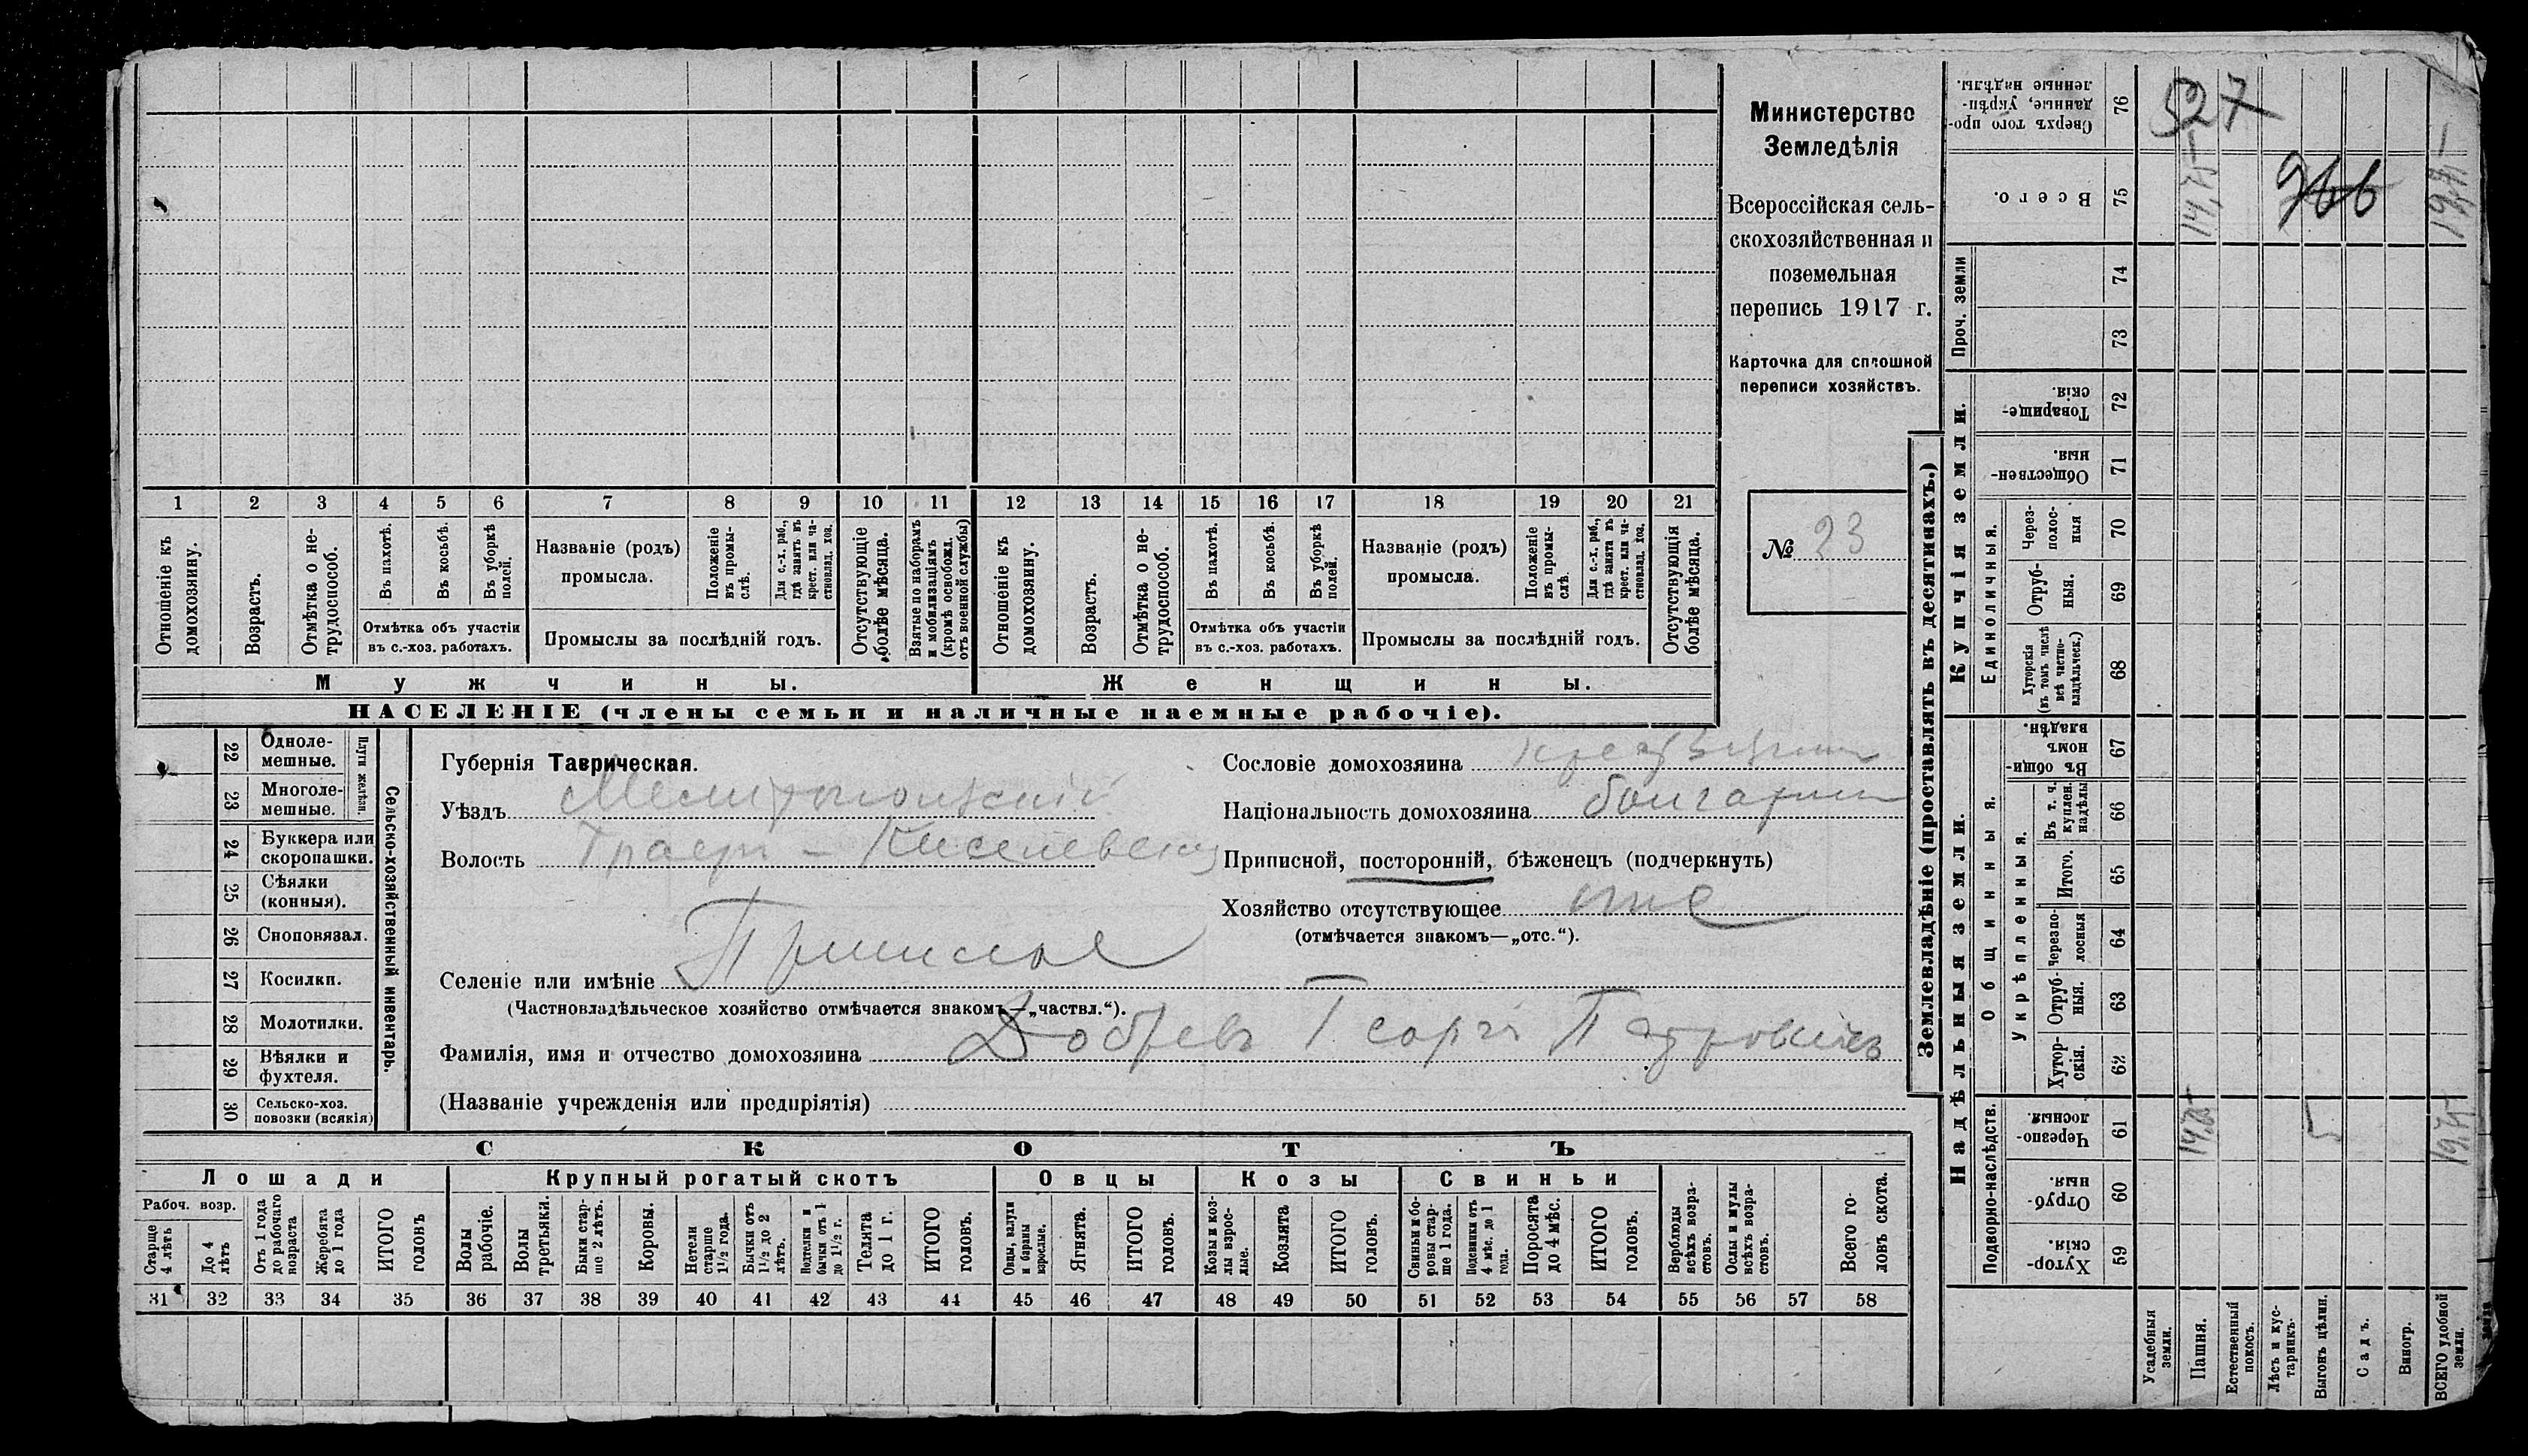 Министерство
Земледѣлія
Всероссійская сель-
скохозяйственная и
поземельная
перепись 1917 г.
Карточка для сплошной
переписи хозяйствъ.
№ 23
1 2 3 4 5 6 7 8 9 10 11 12 13 14 15 16 17 18 19 20 21
Отношеніе къ домохозяину.
Возрастъ.
Отмѣтка о не-трудоспособ.
Въ пахотѣ.
Въ косьбѣ.
Въ уборкѣ полей.
Отмѣтка объ участіи въ с.-хоз. работахъ.
Названіе (родъ) промысла.
Положеніе въ промы-слѣ.
Для с.-х. раб., гдѣ занятъ въ крест. или ча-стновлад. хоз.
Промыслы за послѣдній годъ.
Отсутствующіе болѣе мѣсяца.
Взятые по наборамъ и мобилизаціямъ (кромѣ освобожд. отъ военной службы)
Отношеніе къ домохозяину.
Возрастъ.
Отмѣтка о не-трудоспособ.
Въ пахотѣ.
Въ косьбѣ.
Въ уборкѣ полей.
Отмѣтка объ участіи въ с.-хоз. работахъ.
Названіе (родъ) промысла.
Положеніе въ промы-слѣ.
Для с.-х. раб., гдѣ занята въ крест. или ча-стновлад. хоз.
Промыслы за послѣдній годъ.
Отсутствующія болѣе мѣсяца.
Мужчины.
Женщины.
НАСЕЛЕНІЕ (члены семьи и наличные наемные рабочіе).
22 Одноле-мешные.
23 Многоле-мешные.
Плуги желѣзн.
24 Буккера или скоропашки.
25 Сѣялки (конныя).
26 Сноповязал.
27 Косилки.
28 Молотилки.
29 Вѣялки и фухтеля.
30 Сельско-хоз. повозки (всякія)
Сельско-хозяйственный инвентарь.
Губернія Таврическая.
Уѣздъ Мелитопольскій
Волость Графъ - Киселевская
Селеніе или имѣніе
(Частновладѣльческое хозяйство отмѣчается знакомъ—„частвл.“).
Фамилія, имя и отчество домохозяина Добревъ Георгі Петровичъ
(Названіе учрежденія или предпріятія)
Сословіе домохозяина крестьянин
Національность домохозяина болгарин
Приписной, посторонній, бѣженецъ (подчеркнуть)
Хозяйство отсутствующее отс
(отмѣчается знакомъ—„отс.“).
СКОТЪ
Лошади
Крупный рогатый скотъ
Овцы
Козы
Свиньи
Рабоч. возр.
Старше 4 лѣтъ
До 4 лѣтъ
Отъ 1 года до рабочаго возраста
Жеребята до 1 года
ИТОГО головъ
Волы рабочіе.
Волы третьяки.
Быки стар-ше 2 лѣтъ.
Коровы.
Нетели старше 1½ года.
Бычки отъ 1½ до 2 лѣтъ.
Подтелки и бычки отъ 1 до 1½ г.
Телята до 1 г.
ИТОГО головъ.
Овцы, валухи и бараны взрослые.
Ягнята.
ИТОГО головъ.
Козы и коз-лы взрос-лые.
Козлята
ИТОГО головъ.
Свиньи и бо-ровы стар-ше 1 года.
Подсвинки отъ 4 мѣс. до 1 года.
Поросята до 4 мѣс.
ИТОГО головъ.
Верблюды всѣхъ возра-стовъ.
Ослы и мулы всѣхъ возра-стовъ.
Всего го-ловъ скота.
31 32 33 34 35 36 37 38 39 40 41 42 43 44 45 46 47 48 49 50 51 52 53 54 55 56 57 58
Землевладѣніе (проставлять въ десятинахъ.)
Надѣльныя земли.
Купчія земли.
Проч. земли
Подворно-наслѣдств.
Общинныя.
Укрѣпленныя.
Единоличныя.
76 Сверхъ того про-данные, укрѣп-ленные надѣлы.
75 Всего.
74
73
72 Товарище-скія.
71 Обществен-ныя.
70 Через-полос-ныя
69 Отруб-ныя.
68 Хуторскія (въ томъ числѣ всѣ частно-владѣльческ.)
67 Въ общи-номъ владѣн.
66 Въ т. ч. куплен. надѣлы
65 Итого.
64 Черезпо-лосныя
63 Отруб-ныя.
62 Хутор-скія.
61 Черезпо-лосныя.
60 Отруб-ныя.
59 Хутор-скія.
Усадебныя земли.
Пашня.
Естественный покосъ.
Лѣсъ и кус-тарникъ.
Выгонъ цѣлин.
Садъ.
Виногр.
ВСЕГО удобной земли.
527
966
14,75
19,75
14,75
5
19,75